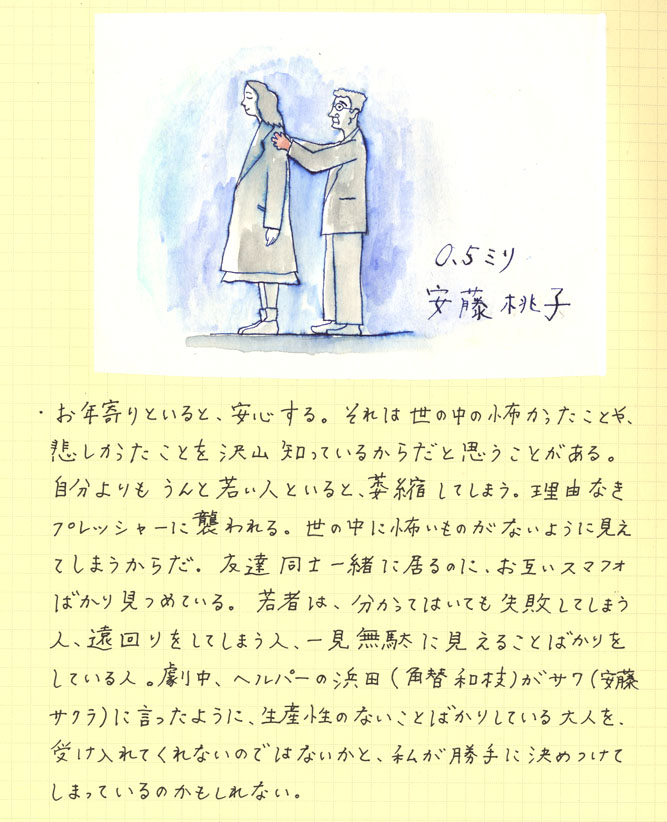 0.5ミリ
安藤桃子
・お年寄りといると、安心する。それは世の中の怖かったことや、
悲しかったことを沢山知っているからだと思うことがある。
自分よりもうんと若い人といると、萎縮してしまう。理由なき
プレッシャーに襲われる。世の中に怖いものがないように見え
てしまうからだ。友達同士一緒に居るのに、お互いスマフォ
ばかり見つめている。若者は、分かってはいても失敗してしまう
人、遠回りをしてしまう人、一見無駄に見えることばかりを
している人。劇中、ヘルパーの浜田(角替和枝)がサワ(安藤
サクラ)に言ったように、生産性のないことばかりしている大人を、
受け入れてくれないのではないかと、私が勝手に決めつけて
しまっているのかもしれない。